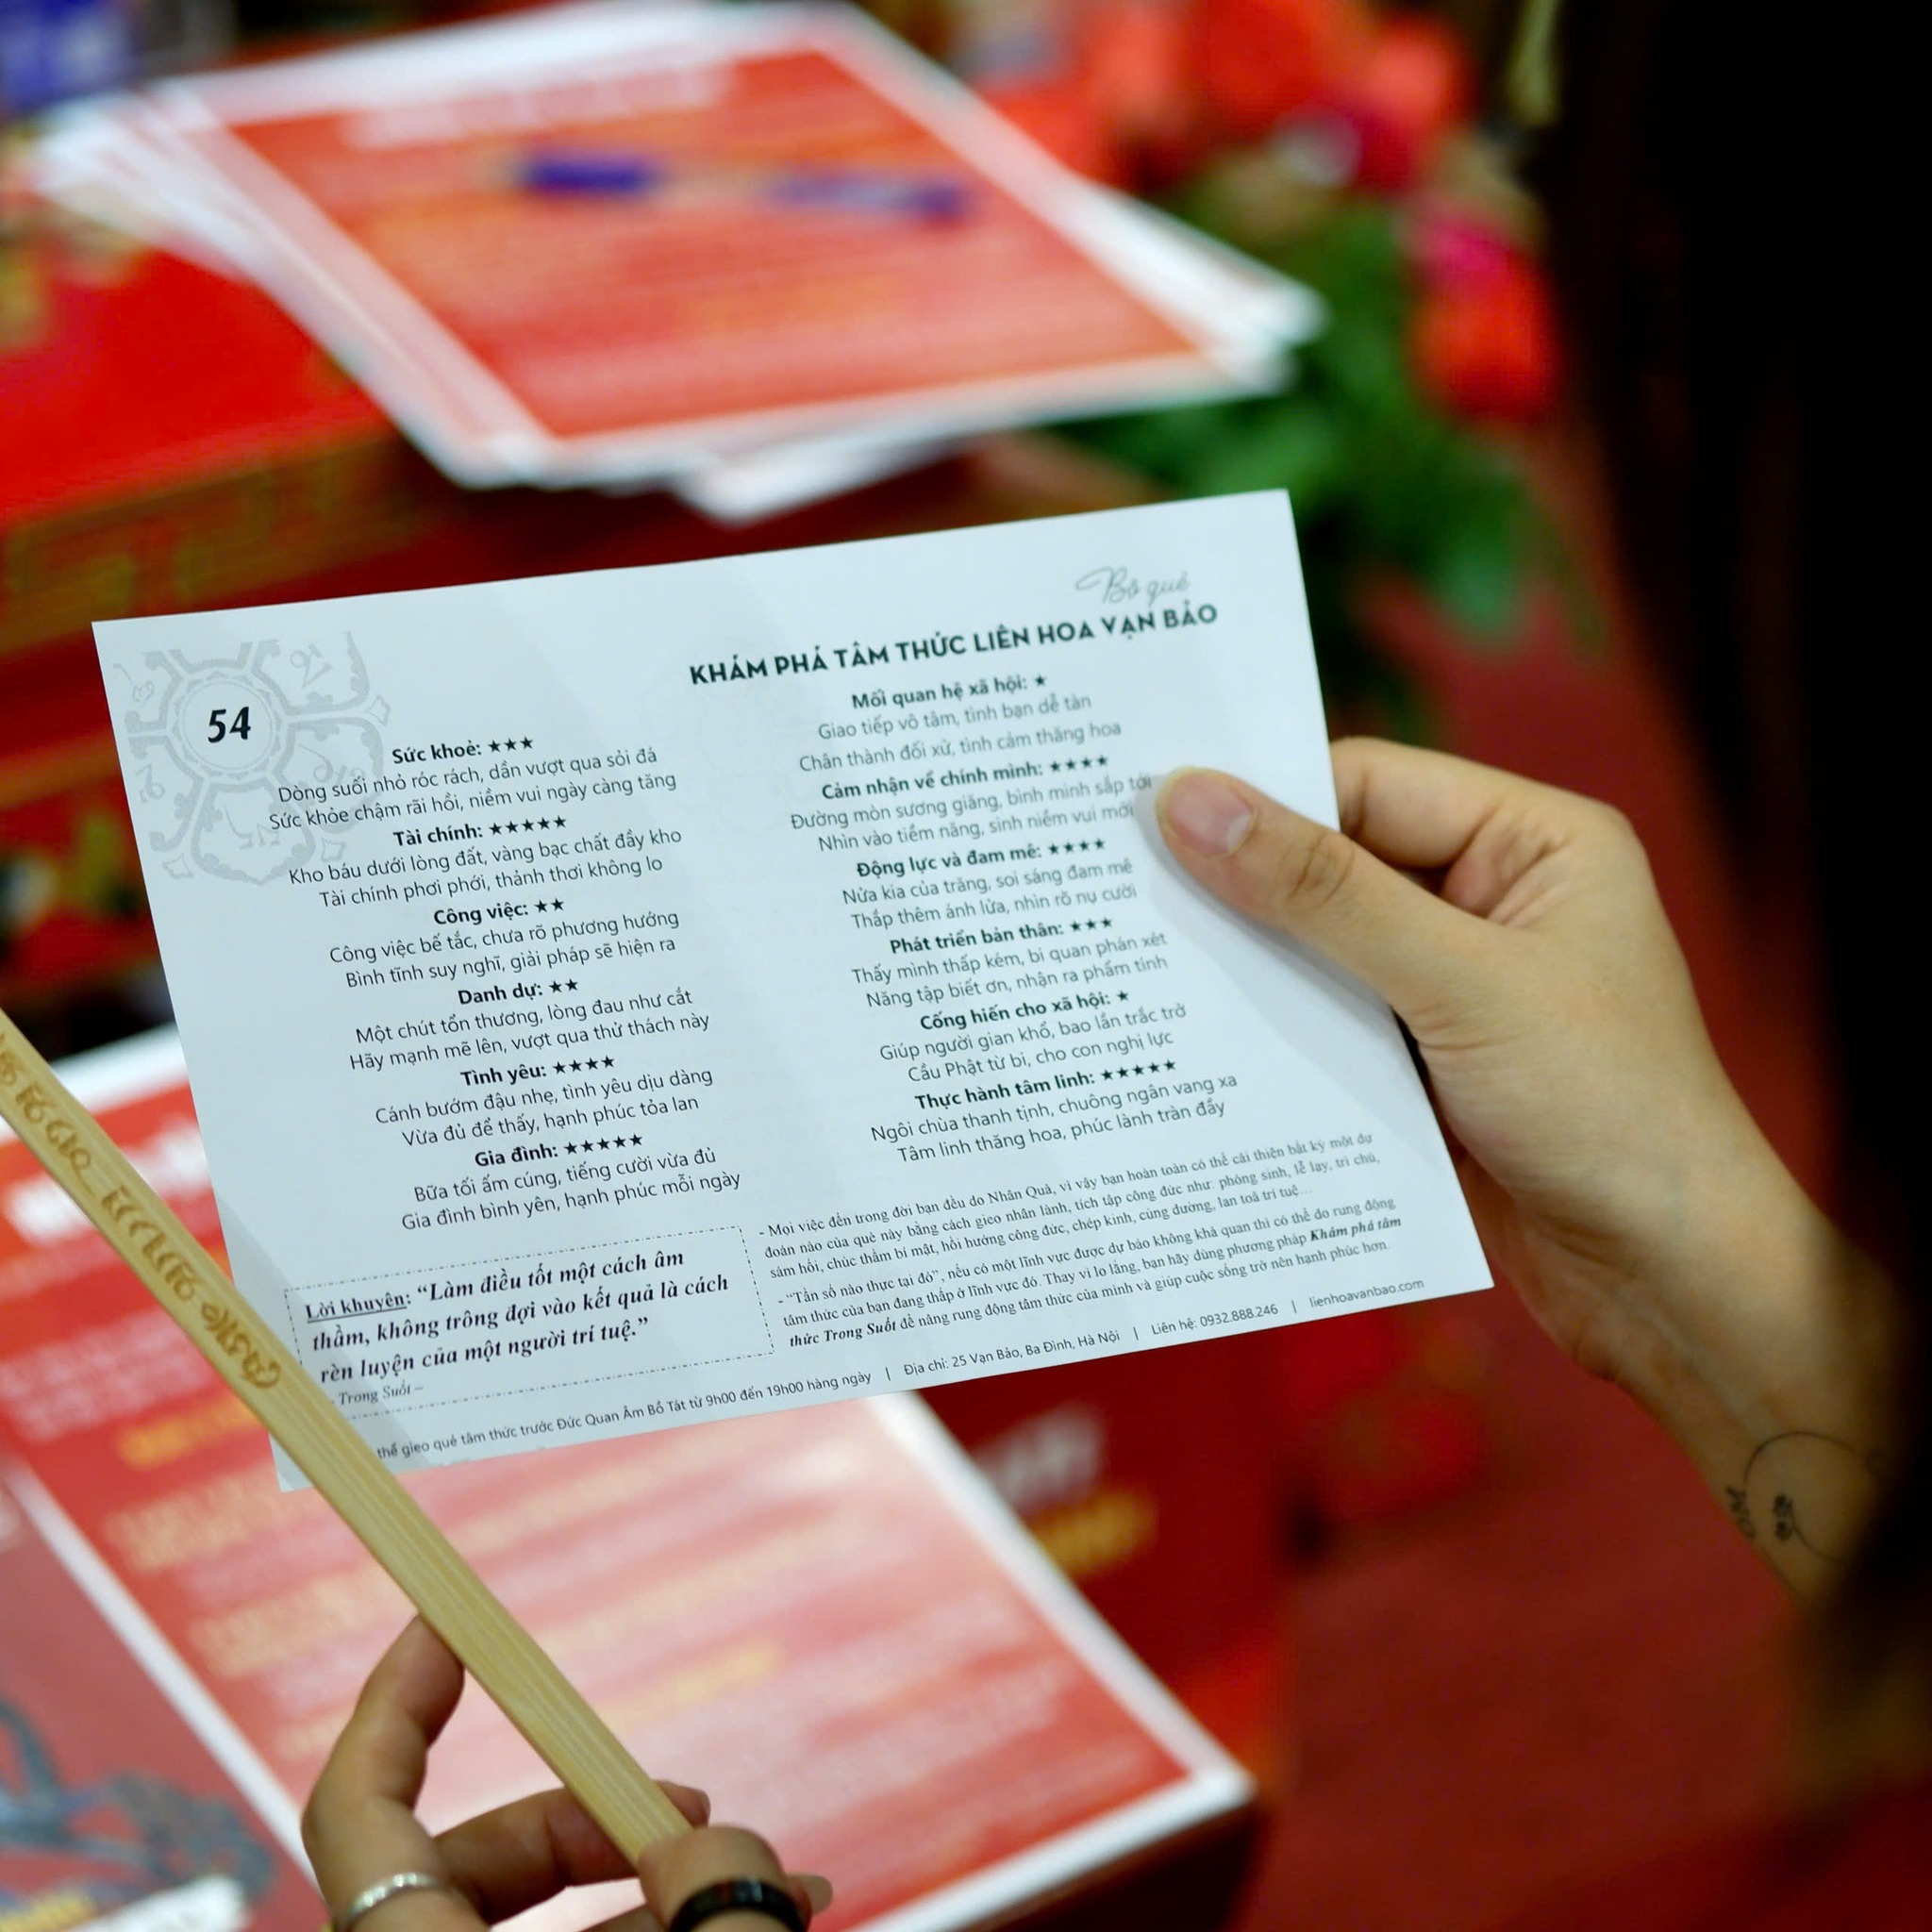 Bộ quẻ
KHÁM PHÁ TÂM THỨC LIÊN HOA VẠN BẢO
54
Sức khoẻ: ★★★
Dòng suối nhỏ róc rách, dần vượt qua sỏi đá
Sức khỏe chậm rãi hồi, niềm vui ngày càng tăng
Tài chính: ★★★★★
Kho báu dưới lòng đất, vàng bạc chất đầy kho
Tài chính phơi phới, thảnh thơi không lo
Công việc: ★★
Công việc bế tắc, chưa rõ phương hướng
Bình tĩnh suy nghĩ, giải pháp sẽ hiện ra
Danh dự: ★★
Một chút tổn thương, lòng đau như cắt
Hãy mạnh mẽ lên, vượt qua thử thách này
Tình yêu: ★★★★
Cánh bướm đậu nhẹ, tình yêu dịu dàng
Vừa đủ để thấy, hạnh phúc tỏa lan
Gia đình: ★★★★★
Bữa tối ấm cúng, tiếng cười vừa đủ
Gia đình bình yên, hạnh phúc mỗi ngày
Mối quan hệ xã hội: ★
Giao tiếp vô tâm, tình bạn dễ tàn
Chân thành đối xử, tình cảm thăng hoa
Cảm nhận về chính mình: ★★★★
Đường mòn sương giăng, bình minh sắp tới
Nhìn vào tiềm năng, sinh niềm vui mới
Động lực và đam mê: ★★★★
Nửa kia của trăng, soi sáng đam mê
Thắp thêm ánh lửa, nhìn rõ nụ cười
Phát triển bản thân: ★★★
Thấy mình thấp kém, bi quan phán xét
Năng tập biết ơn, nhận ra phẩm tính
Cống hiến cho xã hội: ★
Giúp người gian khổ, bao lần trắc trở
Cầu Phật từ bi, cho con nghị lực
Thực hành tâm linh: ★★★★★
Ngôi chùa thanh tịnh, chuông ngân vang xa
Tâm linh thăng hoa, phúc lành tràn đầy
Lời khuyên: “Làm điều tốt một cách âm
thầm, không trông đợi vào kết quả là cách
rèn luyện của một người trí tuệ.”
Trong Suốt –
- Mọi việc đến trong đời bạn đều do Nhân Quả, vì vậy bạn hoàn toàn có thể cải thiện bất kỳ một dự
đoán nào của quẻ này bằng cách gieo nhân lành, tích tập công đức như: phóng sinh, lễ lạy, trì chú,
sám hối, chúc thầm bí mật, hồi hướng công đức, chép kinh, cúng dường, lan toả trí tuệ...
- “Tần số nào thực tại đó”, nếu có một lĩnh vực được dự báo không khả quan thì có thể do rung động
tâm thức của bạn đang thấp ở lĩnh vực đó. Thay vì lo lắng, bạn hãy dùng phương pháp Khám phá tâm
thức Trong Suốt để nâng rung động tâm thức của mình và giúp cuộc sống trở nên hạnh phúc hơn.
thể gieo quẻ tâm thức trước Đức Quan Âm Bồ Tát từ 9h00 đến 19h00 hàng ngày | Địa chỉ: 25 Vạn Bảo, Ba Đình, Hà Nội | Liên hệ: 0932.888.246 | lienhoavanbao.com